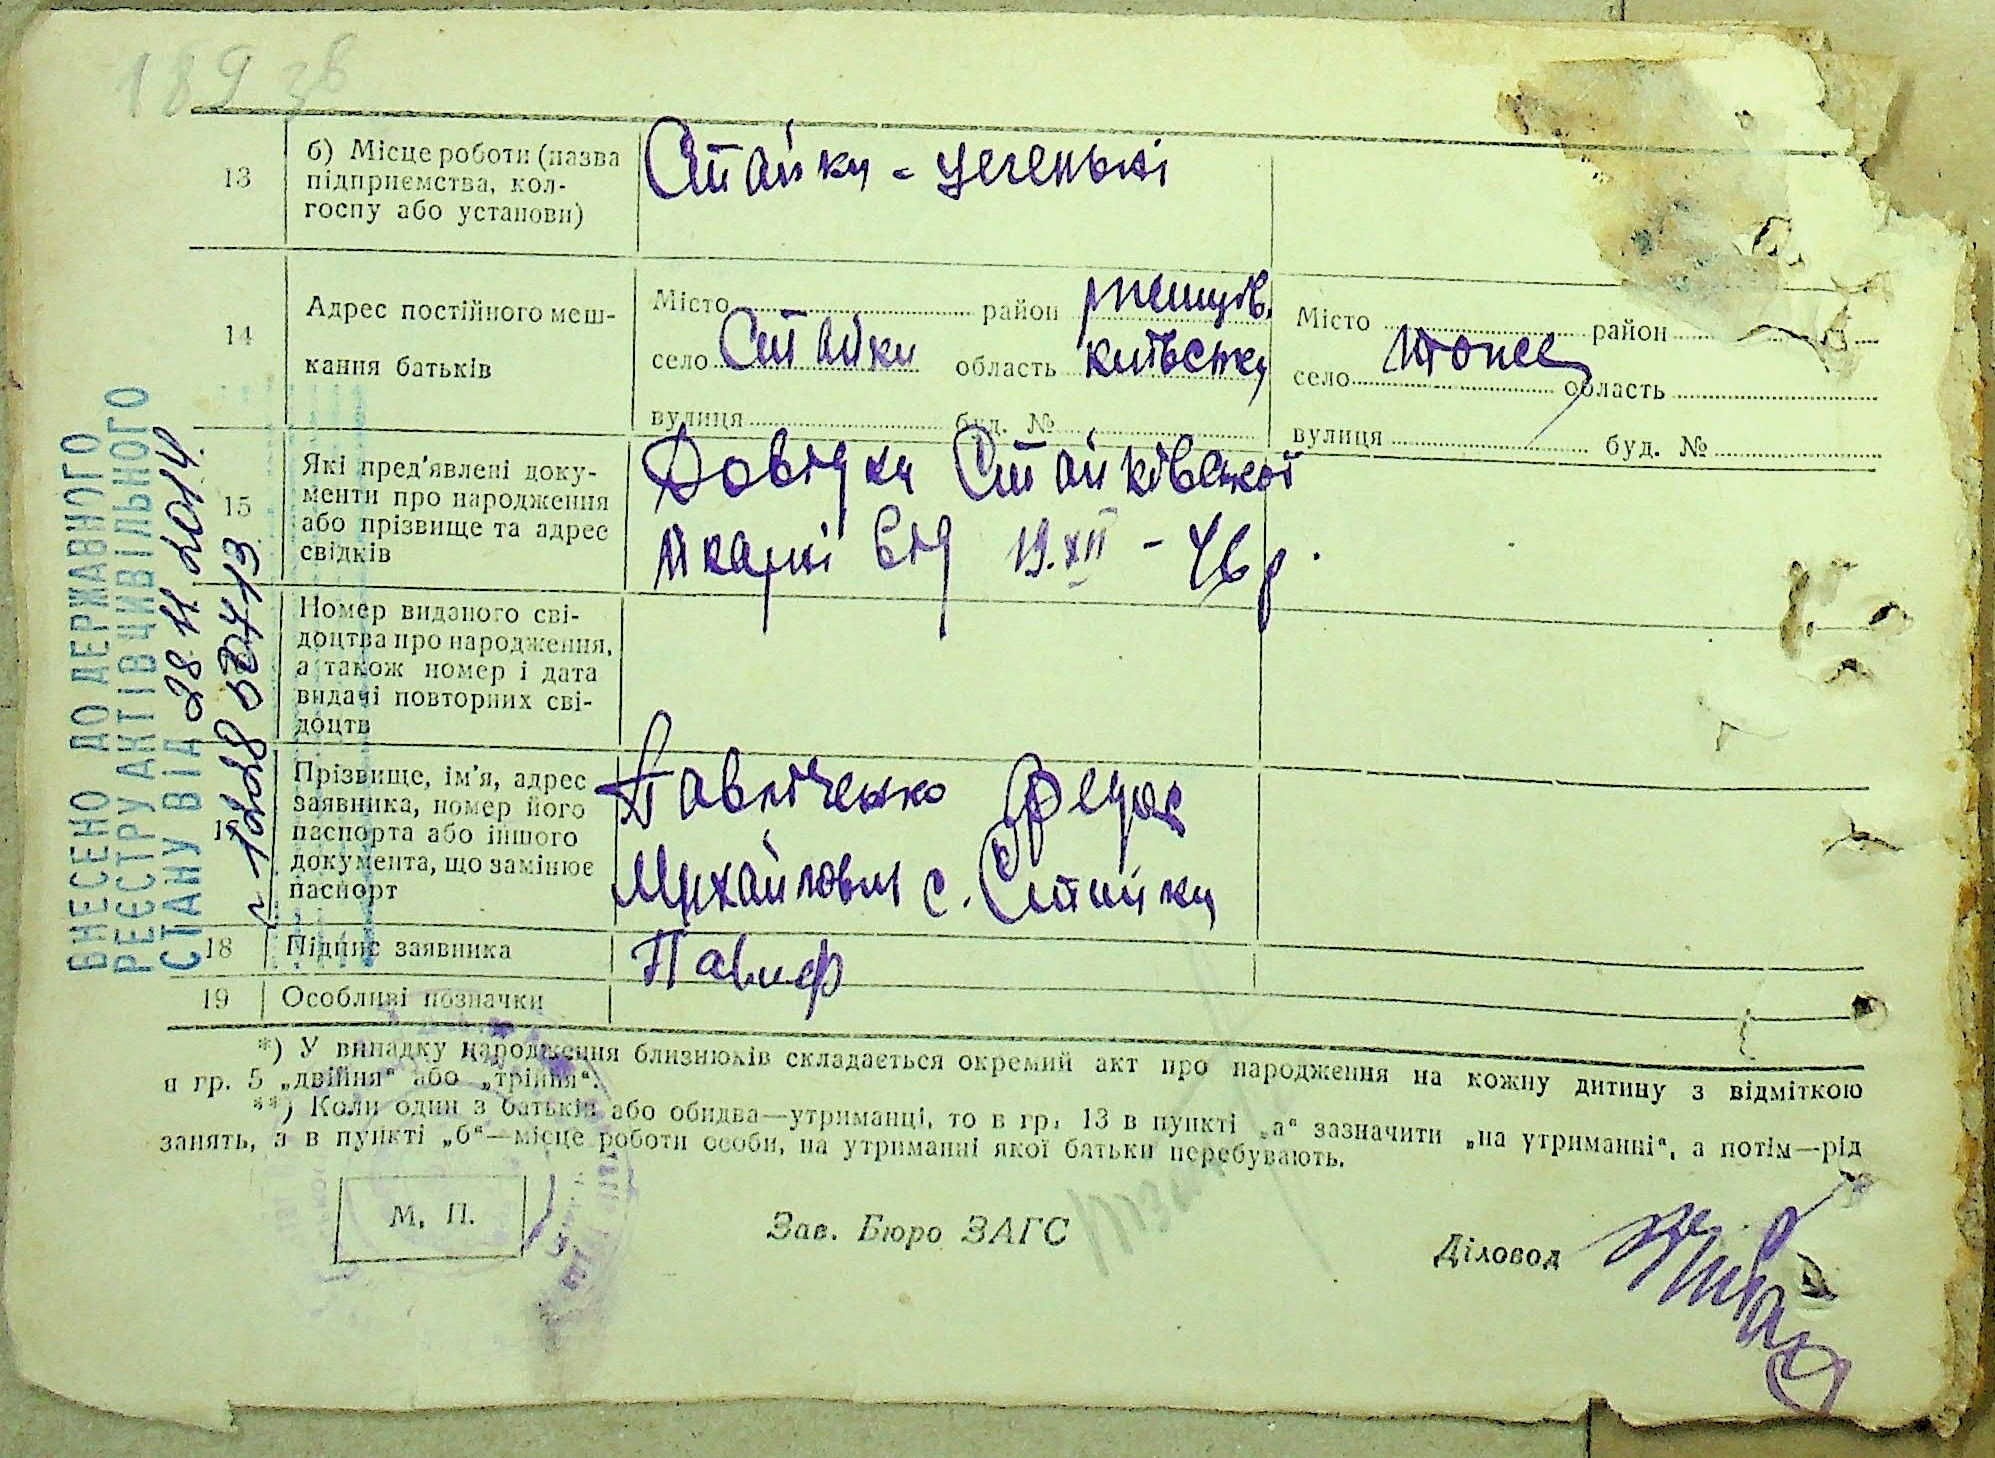 189 зв
13
б) Місце роботи (назва
підприємства, кол-
госпу або установи)
Стайки - цегельні
14
Адрес постійного меш-
кання батьків
Місто район Ржищів.
село Стайки область Київська
вулиця буд. №
Місто район
село тоже область
вулиця буд. №
15
Які пред'явлені доку-
менти про народження
або прізвище та адрес
свідків
Довідки Стайківської
лікарні від 19.XII - 46 р.
Номер виданого сві-
доцтва про народження,
а також номер і дата
видачі повторних сві-
доцтв
Прізвище, ім'я, адрес
заявника, номер його
паспорта або іншого
документа, що замінює
паспорт
Павліченко Федос
Михайлович с. Стайки
18
Підпис заявника
19
Особливі позначки
*) У випадку народження близнюків складається окремий акт про народження на кожну дитину з відміткою
в гр. 5 „двійня“ або „трійня“.
**) Коли один з батьків або обидва—утриманці, то в гр. 13 в пункті „а“ зазначити „на утриманні“, а потім—рід
занять, а в пункті „б“—місце роботи особи, на утриманні якої батьки перебувають.
М. П.
Зав. Бюро ЗАГС
Діловод
ВНЕСЕНО ДО ДЕРЖАВНОГО
РЕЄСТРУ АКТІВ ЦИВІЛЬНОГО
СТАНУ ВІД 28.11.2014